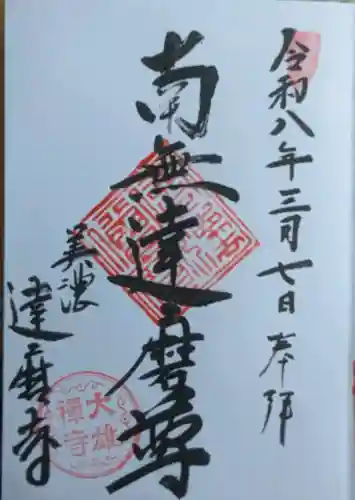 令和八年三月七日 奉拝
南無達磨尊
美濃
達磨寺
大雄
禅寺